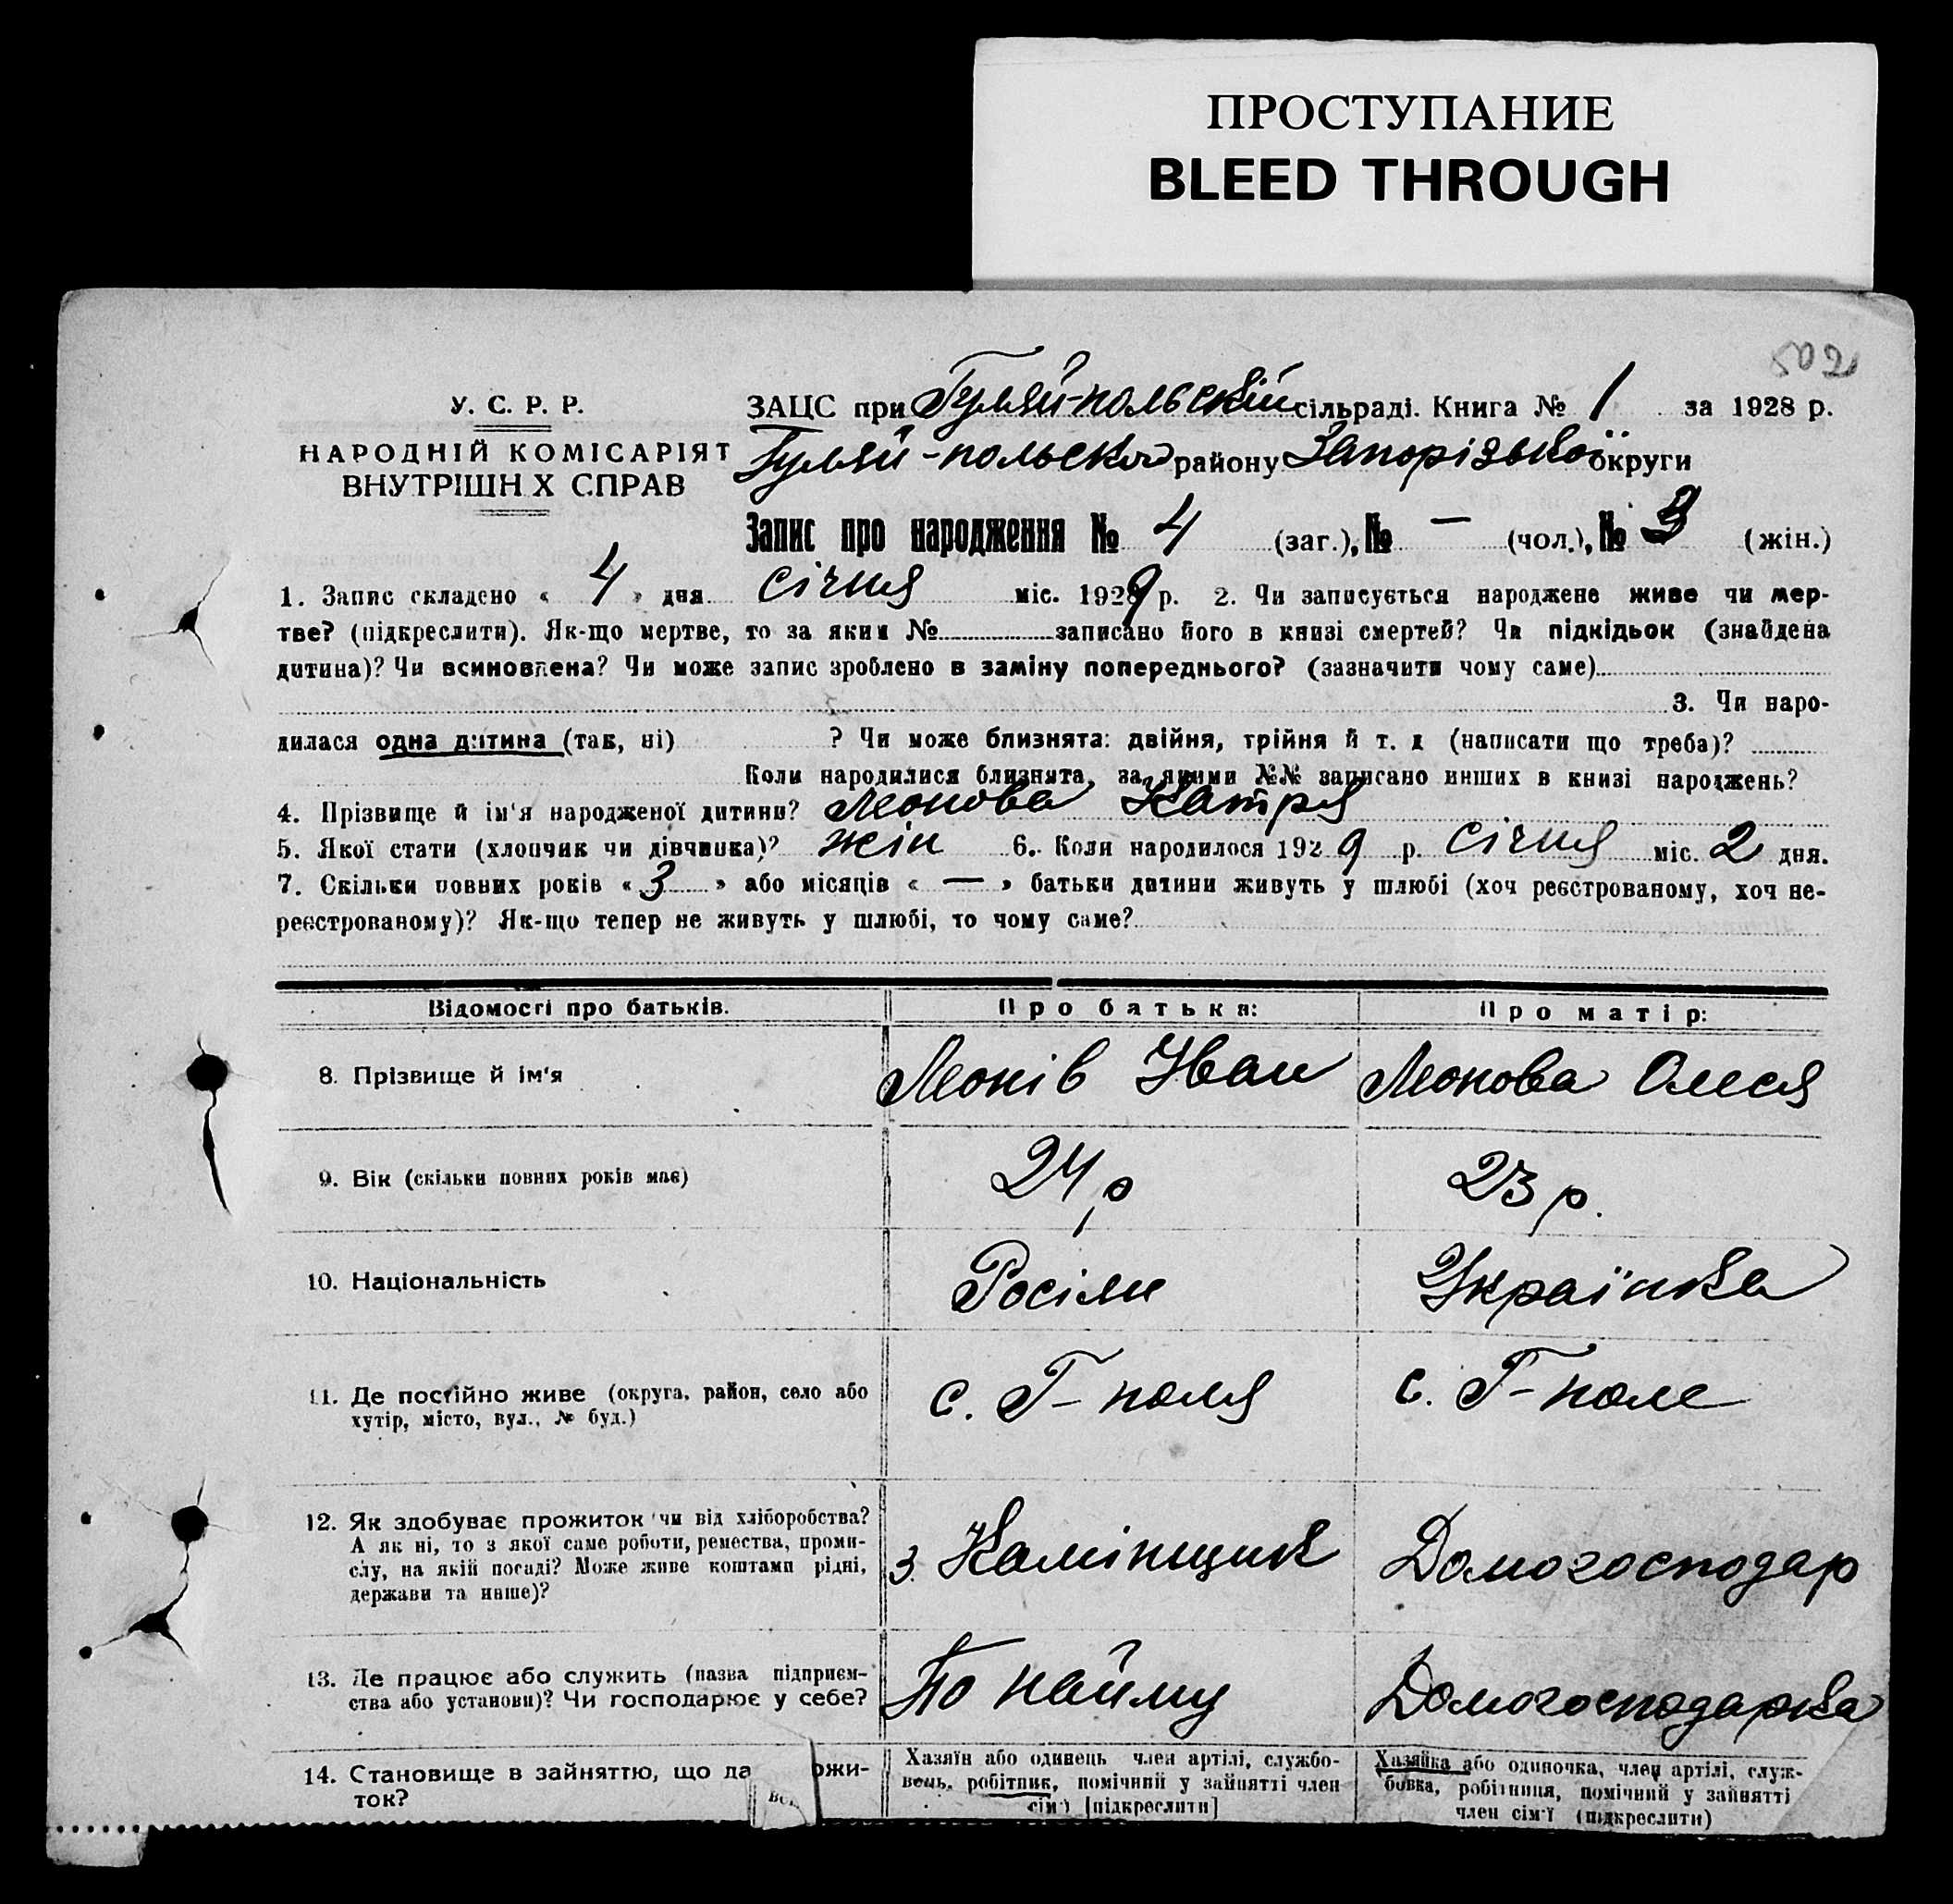 ПРОСТУПАНИЕ
BLEED THROUGH
502
У. С. Р. Р.
НАРОДНІЙ КОМІСАРІЯТ
ВНУТРІШН Х СПРАВ
ЗАЦС при Гуляй-польскій сільраді. Книга № 1 за 1928 р.
Гуляй-польско району Запорізької округи
Запис про народження № 4 (заг.), № — (чол.), № 3 (жін.)
1. Запис складено « 4 » дня січня міс. 1929 р. 2. Чи записується народжене живе чи мер-
тве? (підкреслити). Як-що мертве, то за яким № записано його в книзі смертей? Чи підкідьок (знайдена
дитина)? Чи всиновлена? Чи може запис зроблено в заміну попереднього? (зазначити чому саме)
3. Чи наро-
дилася одна дитина (так, ні) ? Чи може близнята: двійня, трійня й т. д (написати що треба)?
Коли народилися близнята, за якими №№ записано инших в книзі народжень?
4. Прізвище й ім'я народженої дитини? Монова Катря
5. Якої стати (хлопчик чи дівчинка)? жін 6. Коли народилося 1929 р. січня міс. 2 дня.
7. Скільки повних років « 3 » або місяців « — » батьки дитини живуть у шлюбі (хоч реєстрованому, хоч не-
реєстрованому)? Як-що тепер не живуть у шлюбі, то чому саме?
Відомості про батьків. Про батька: Про матір:
8. Прізвище й ім'я Монів Іван Монова Олеся
9. Вік (скільки повних років має) 24 р 23 р.
10. Національність Росіян Українка
11. Де постійно живе (округа, район, село або
хутір, місто, вул., № буд.)
с. Г-поля с. Г-поле
12. Як здобуває прожиток чи від хліборобства?
А як ні, то з якої саме роботи, ремества, проми-
слу, на якій посаді? Може живе коштами рідні,
держави та инше)?
з Камінщик Домогосподар
13. Де працює або служить (назва підприєм-
ства або установи)? Чи господарює у себе?
По найму Домогосподарка
14. Становище в зайняттю, що да ожи-
ток?
Хазяїн або одинець член артілі, службо-
вець, робітник, помічний у зайнятті член
сім'ї [підкреслити]
Хазяйка або одиночка, член артілі, служ-
бовка, робітниця, помічний у зайнятті
член сім'ї (підкреслити)